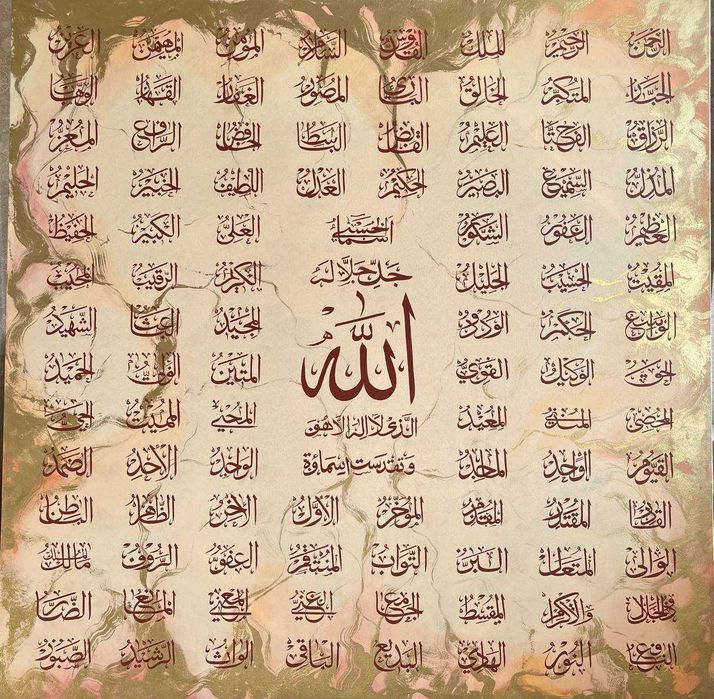 الرحمن الرحيم الملك القدوس السلام المؤمن المهيمن العزيز
الجبار المتكبر الخالق البارئ المصور الغفار القهار الوهاب
الرزاق الفتاح العليم القابض الباسط الخافض الرافع المعز
المذل السميع البصير الحكم العدل اللطيف الخبير الحليم
العظيم الغفور الشكور أسماء الحسنى العلي الكبير الحفيظ
المقيت الحسيب الجليل جل جلاله الكريم الرقيب المجيب
الواسع الحكيم الودود المجيد الباعث الشهيد
الحق الوكيل القوي الله المتين الولي الحميد
المحصي المبدئ المعيد الذي لا إله إلا هو المحيي المميت الحي
القيوم الواجد الماجد وتقدست أسماؤه الواحد الأحد الصمد
القادر المقتدر المقدم المؤخر الأول الآخر الظاهر الباطن
الوالي المتعال البر التواب المنتقم العفو الرؤوف مالك الملك
ذو الجلال والإكرام المقسط الجامع الغني المغني المانع الضار
النافع النور الهادي البديع الباقي الوارث الرشيد الصبور